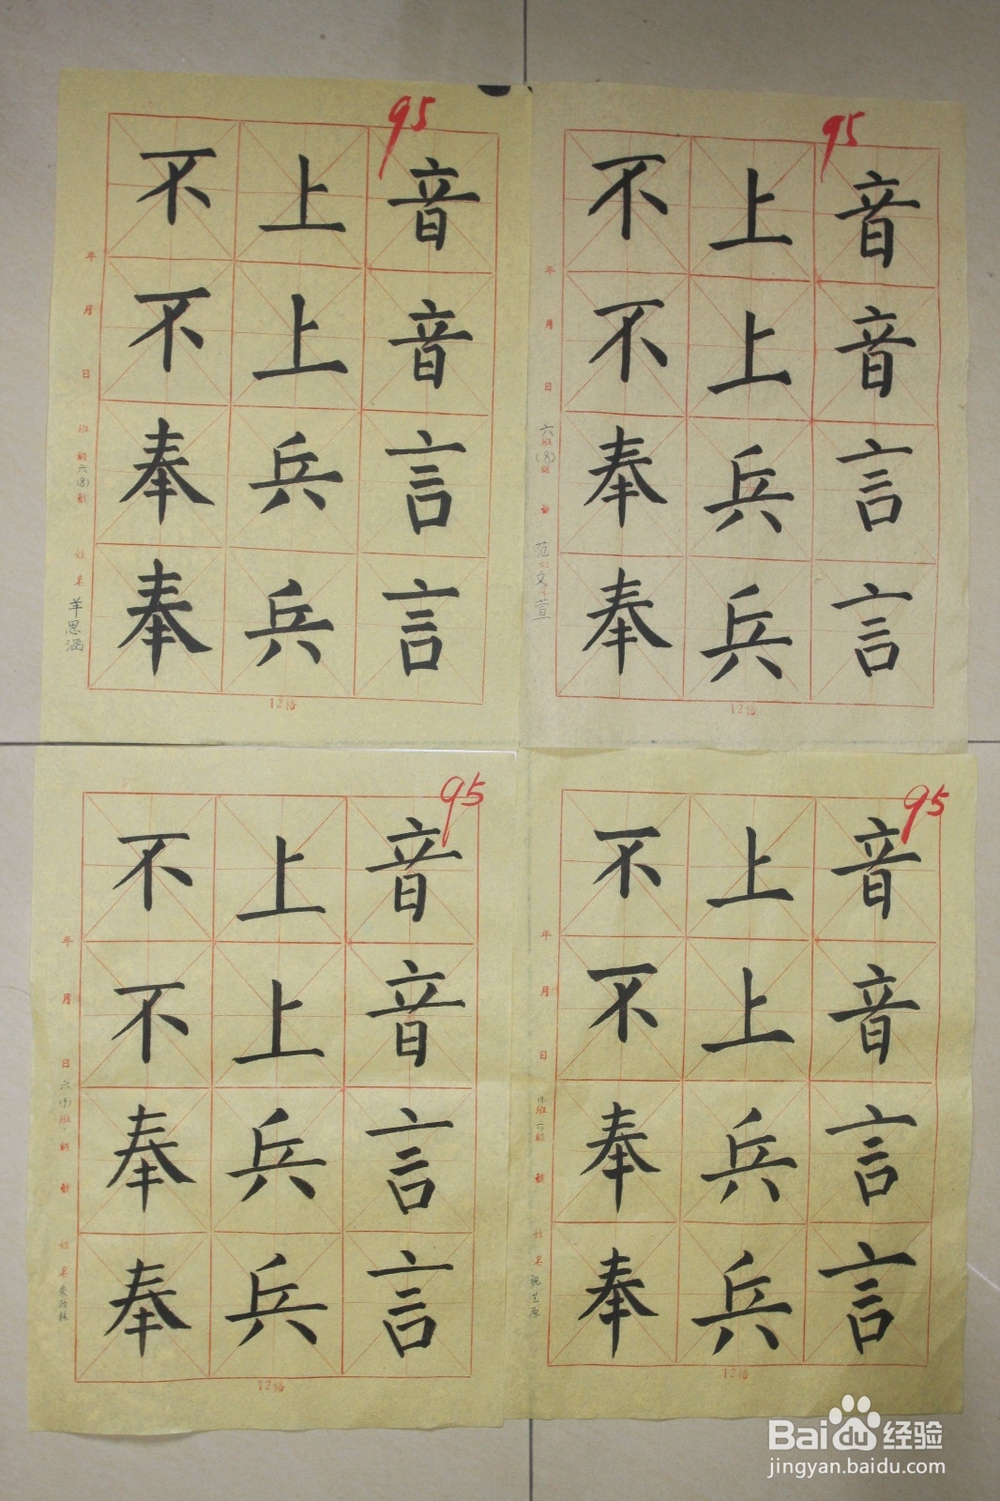 95
不 上 音
不 上 音
奉 兵 言
奉 兵 言
年 月 日 班 级 六(8) 姓 名 羊思涵
12格
95
不 上 音
不 上 音
奉 兵 言
奉 兵 言
年 月 日 六 班 (8) 级 范文萱
12格
95
不 上 音
不 上 音
奉 兵 言
奉 兵 言
年 月 日 六 班 级 姓 名
12格
95
不 上 音
不 上 音
奉 兵 言
奉 兵 言
年 月 日 班 六 级 姓 名 祝艺原
12格
Baidu 经验
jingyan.baidu.com